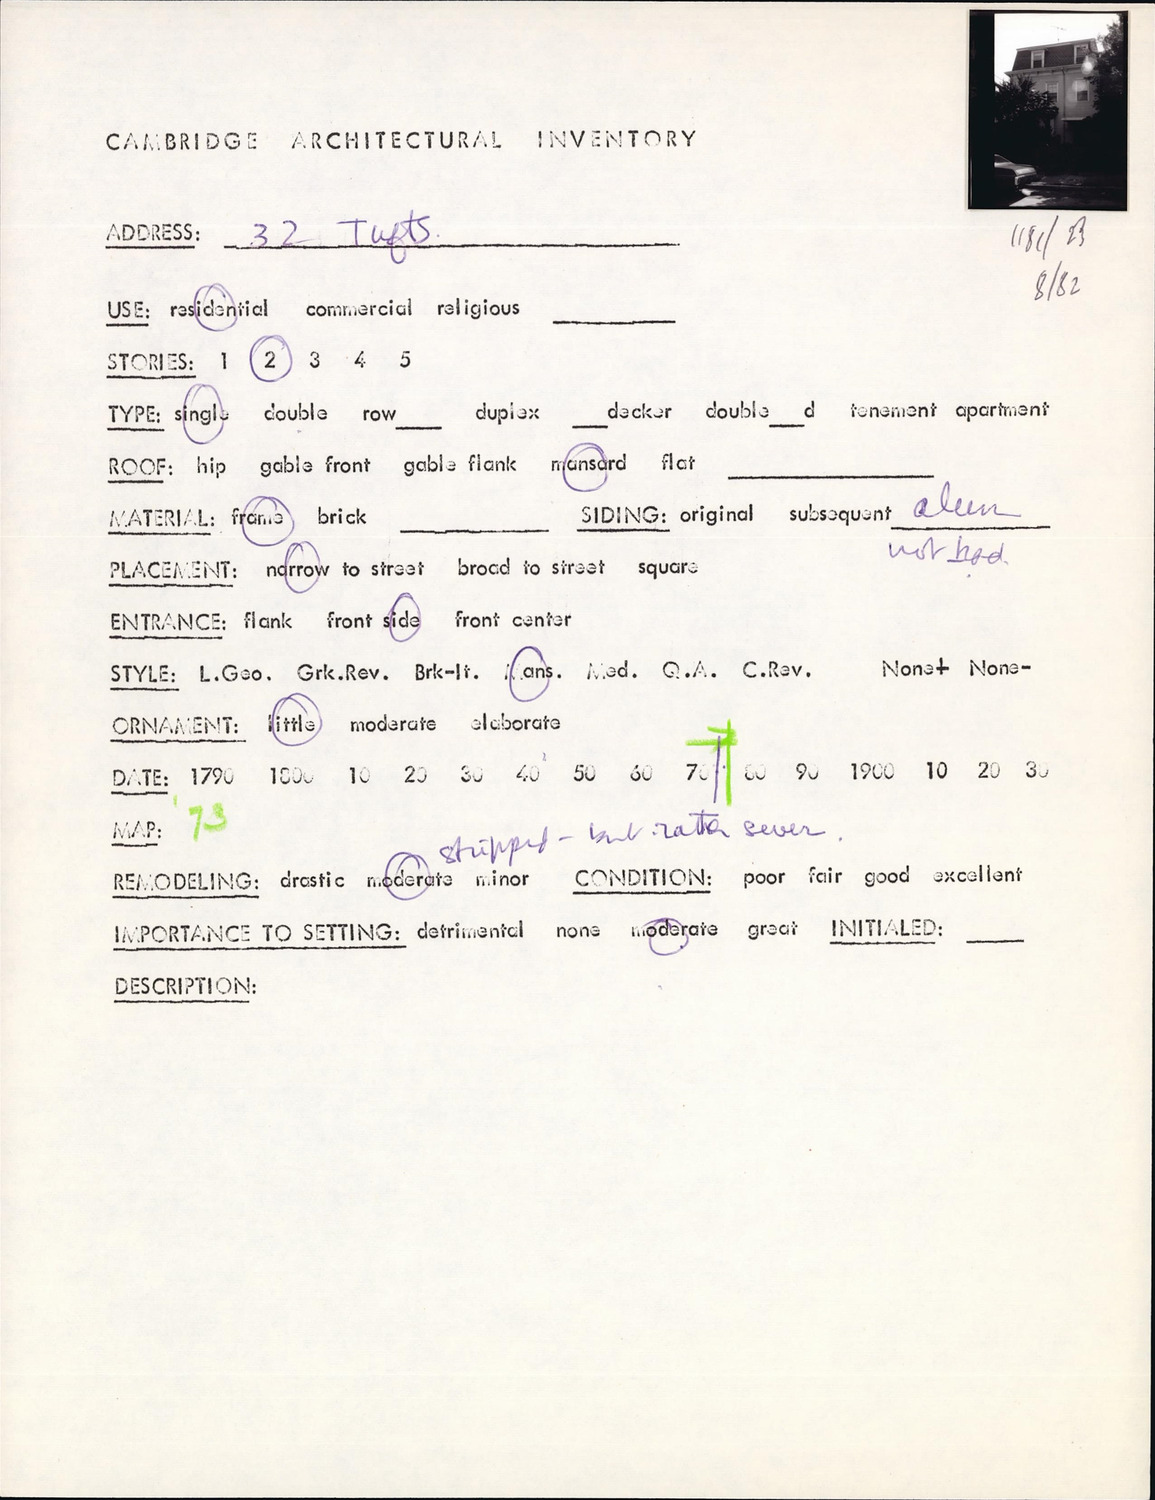 CAMBRIDGE ARCHITECTURAL INVENTORY
8/82
ADDRESS: 32 Tufts.
USE: residential commercial religious
STORIES: 1 2 3 4 5
TYPE: single double row____ duplex ___decker double___d tenement apartment
ROOF: hip gable front gable flank mansard flat
MATERIAL: frame brick SIDING: original subsequent alum
not bad.
PLACEMENT: narrow to street broad to street square
ENTRANCE: flank front side front center
STYLE: L.Geo. Grk.Rev. Brk-It. Mans. Med. Q.A. C.Rev. None+ None-
ORNAMENT: little moderate elaborate
DATE: 1790 1800 10 20 30 40 50 60 70 80 90 1900 10 20 30
MAP: '73
stripped - but rather severe.
REMODELING: drastic moderate minor CONDITION: poor fair good excellent
IMPORTANCE TO SETTING: detrimental none moderate great INITIALED:
DESCRIPTION: